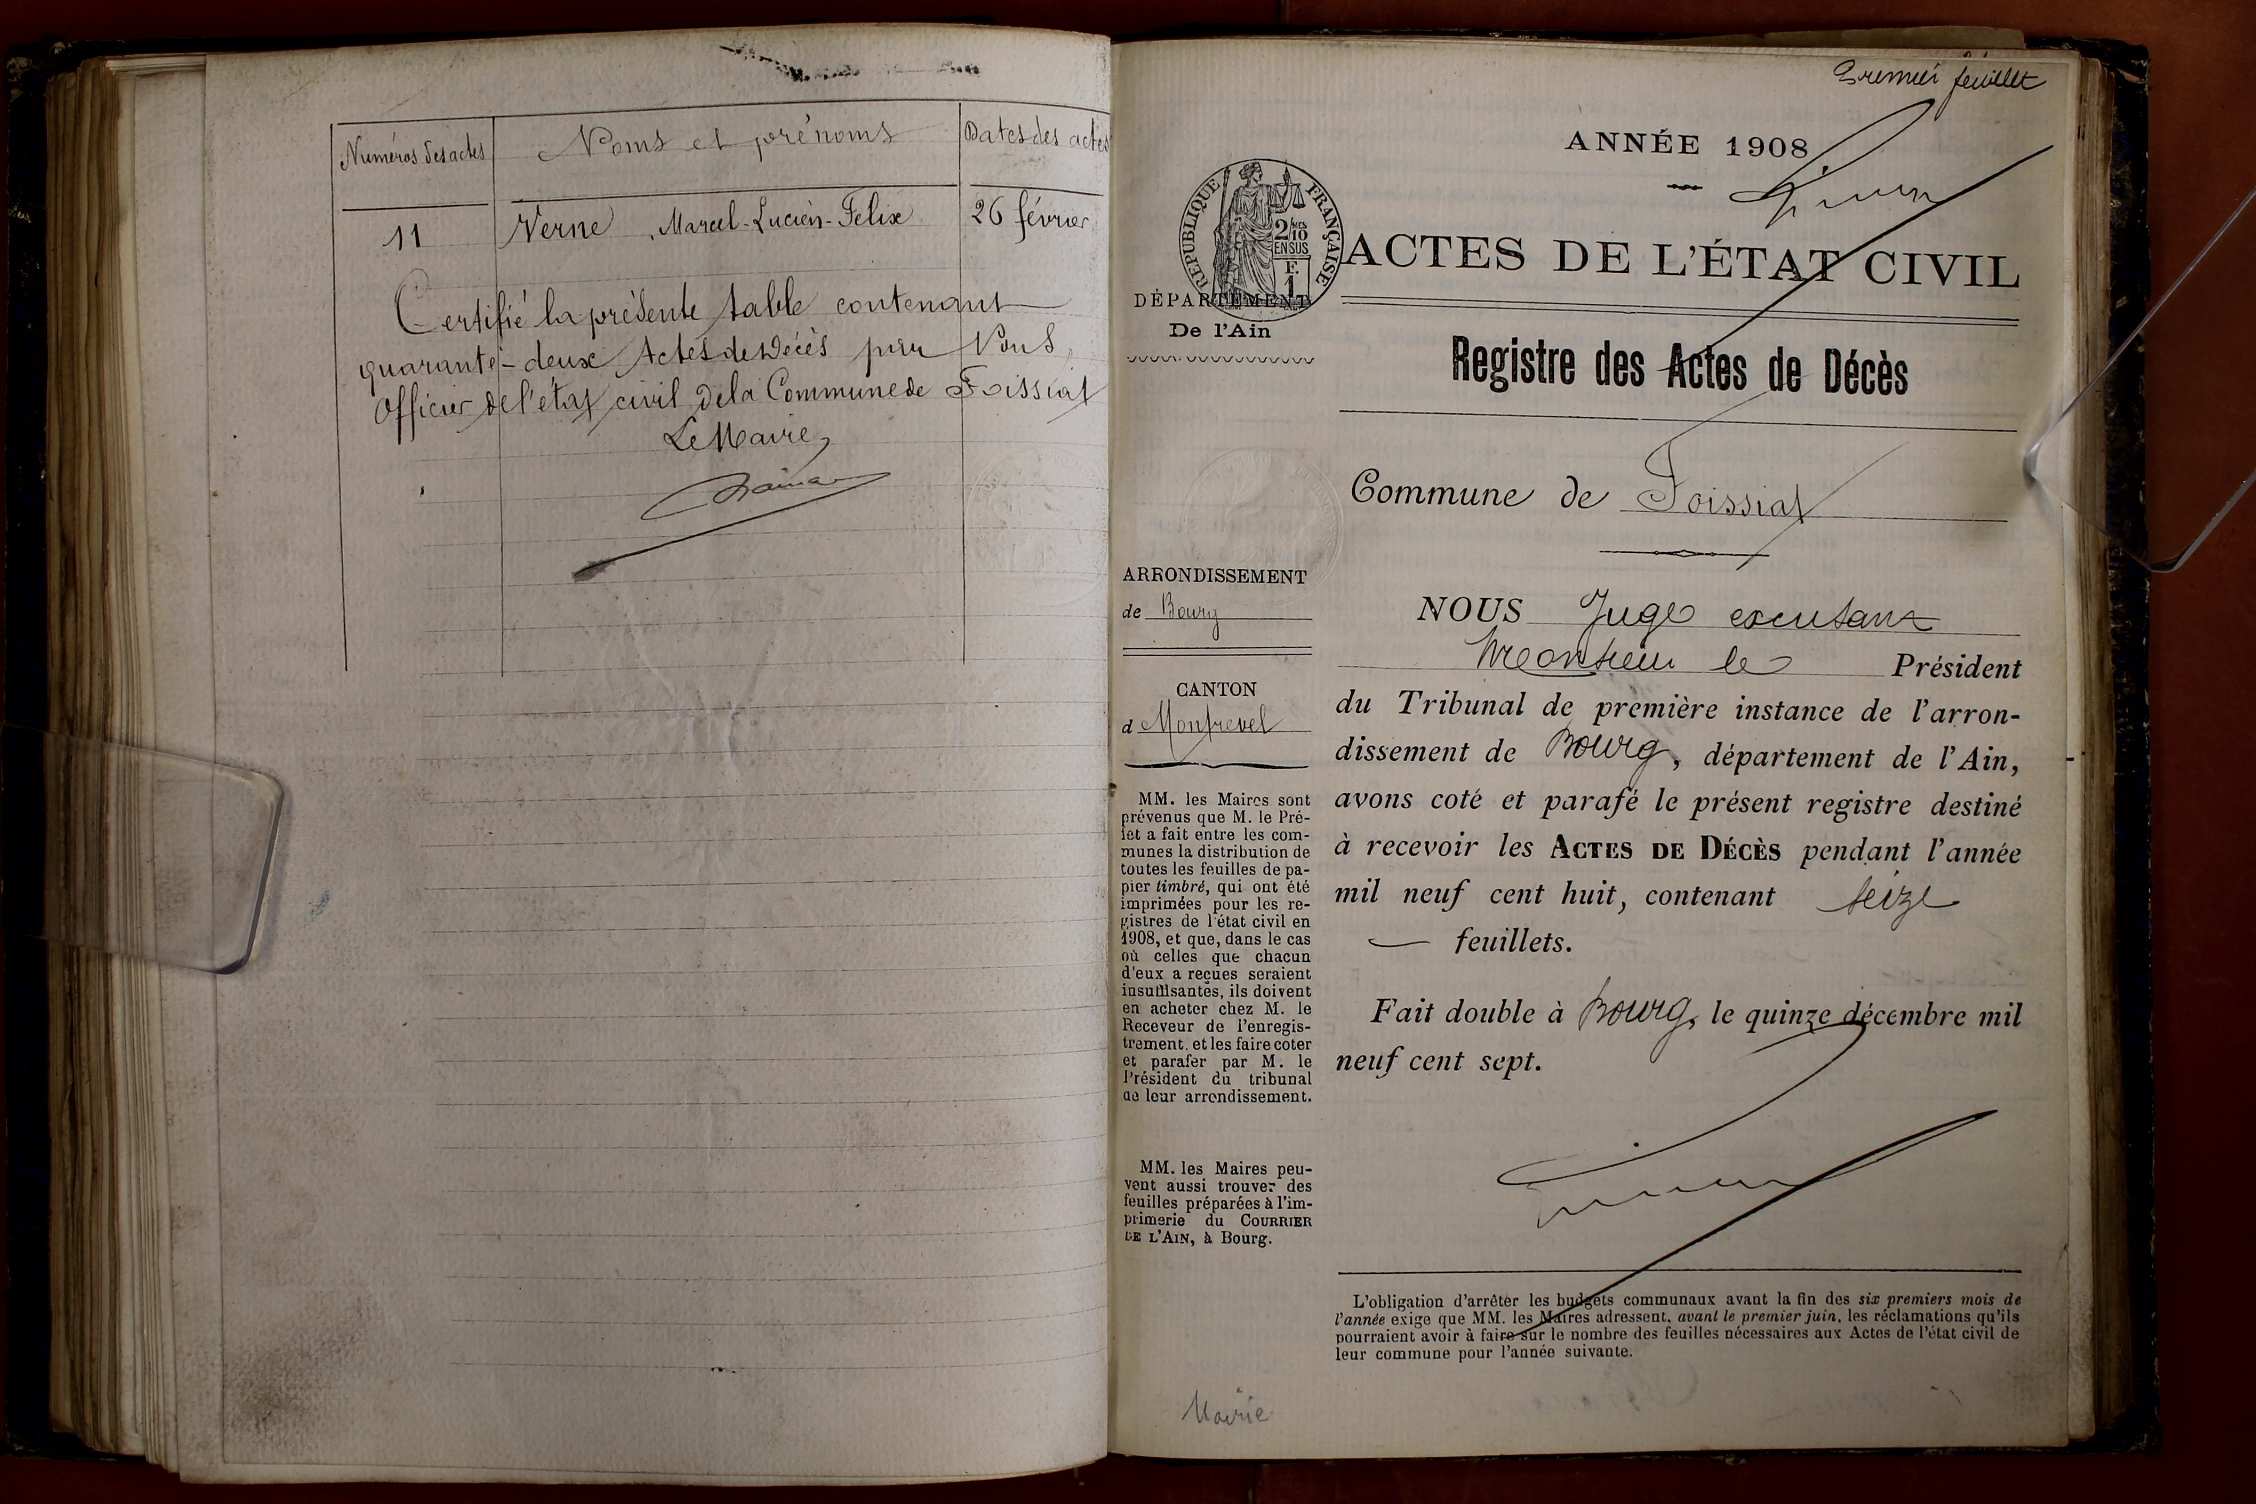 Numéros des actes
Noms et prénoms
Dates des actes
11
Verne, Marcel-Lucien-Felix
26 février
Certifié la présente table contenant
quarante-deux Actes de Décès par Nous,
Officier de l'état civil de la Commune de Foissiat
Le Maire,
Premier feuillet
ANNÉE 1908
RÉPUBLIQUE FRANÇAISE
2/10
EN SUS
F.
1
ACTES DE L'ÉTAT CIVIL
DÉPARTEMENT
De l'Ain
Registre des Actes de Décès
Commune de Foissiat
ARRONDISSEMENT
de Bourg
CANTON
d Montrevel
MM. les Maires sont
prévenus que M. le Pré-
fet a fait entre les com-
munes la distribution de
toutes les feuilles de pa-
pier timbré, qui ont été
imprimées pour les re-
gistres de l'état civil en
1908, et que, dans le cas
où celles que chacun
d'eux a reçues seraient
insuffisantes, ils doivent
en acheter chez M. le
Receveur de l'enregis-
trement. et les faire coter
et parafer par M. le
Président du tribunal
de leur arrondissement.
MM. les Maires peu-
vent aussi trouver des
feuilles préparées à l'im-
primerie du COURRIER
DE L'AIN, à Bourg.
NOUS Juge
Monsieur le Président
du Tribunal de première instance de l'arron-
dissement de Bourg, département de l'Ain,
avons coté et parafé le présent registre destiné
à recevoir les ACTES DE DÉCÈS pendant l'année
mil neuf cent huit, contenant seize
feuillets.
Fait double à Bourg, le quinze décembre mil
neuf cent sept.
L'obligation d'arrêter les budgets communaux avant la fin des six premiers mois de
l'année exige que MM. les Maires adressent, avant le premier juin, les réclamations qu'ils
pourraient avoir à faire sur le nombre des feuilles nécessaires aux Actes de l'état civil de
leur commune pour l'année suivante.
Mairie